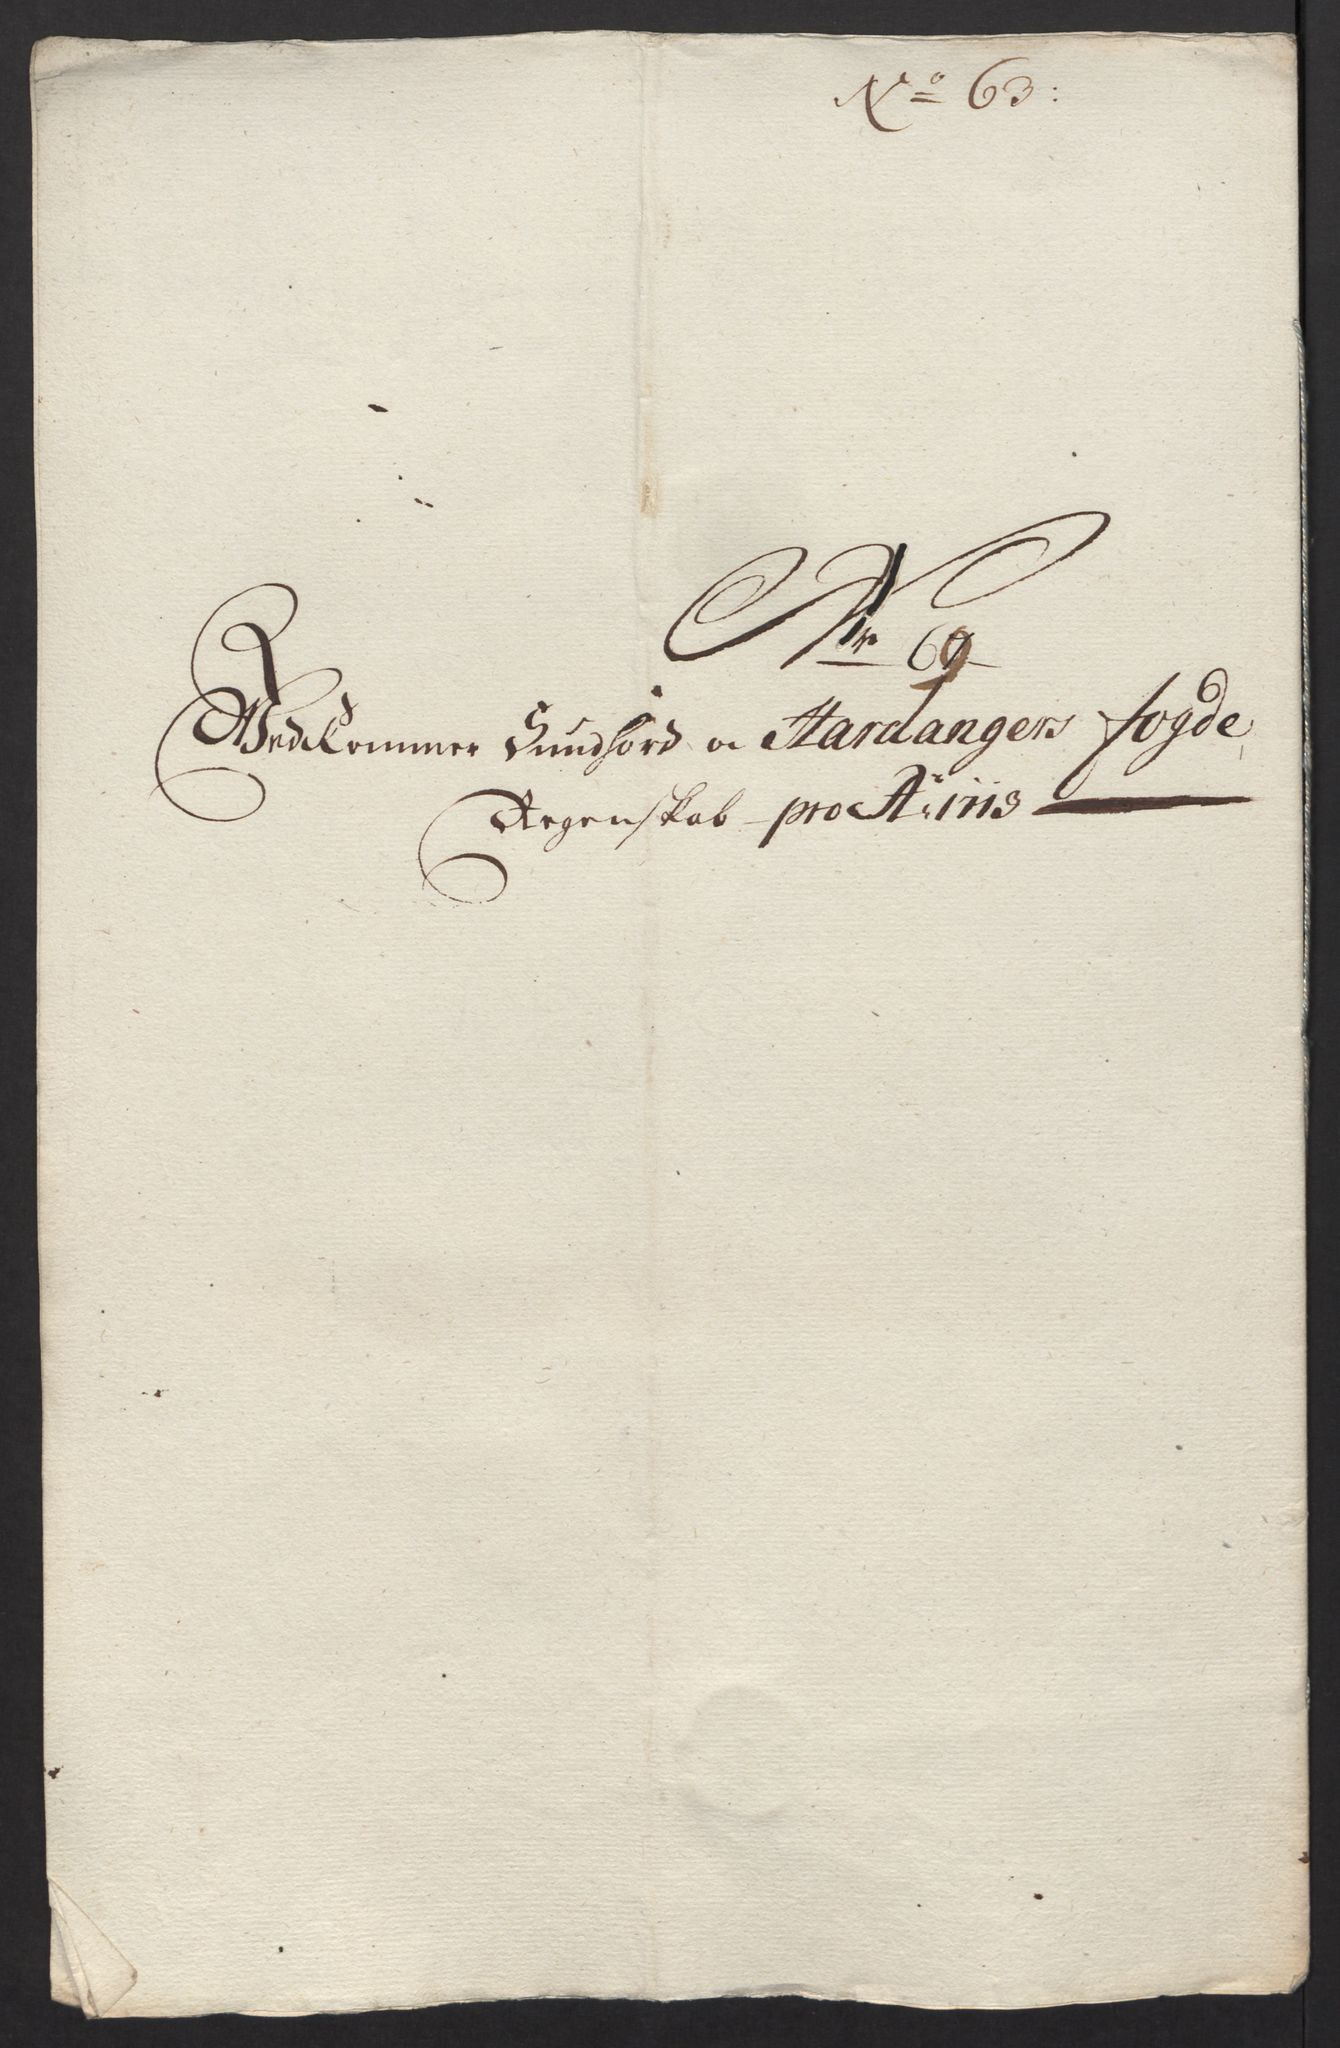 No 63:
N 69
Vedkommer Sundhord oc Hardangers fogde
Regenskab pro Ao: 1713